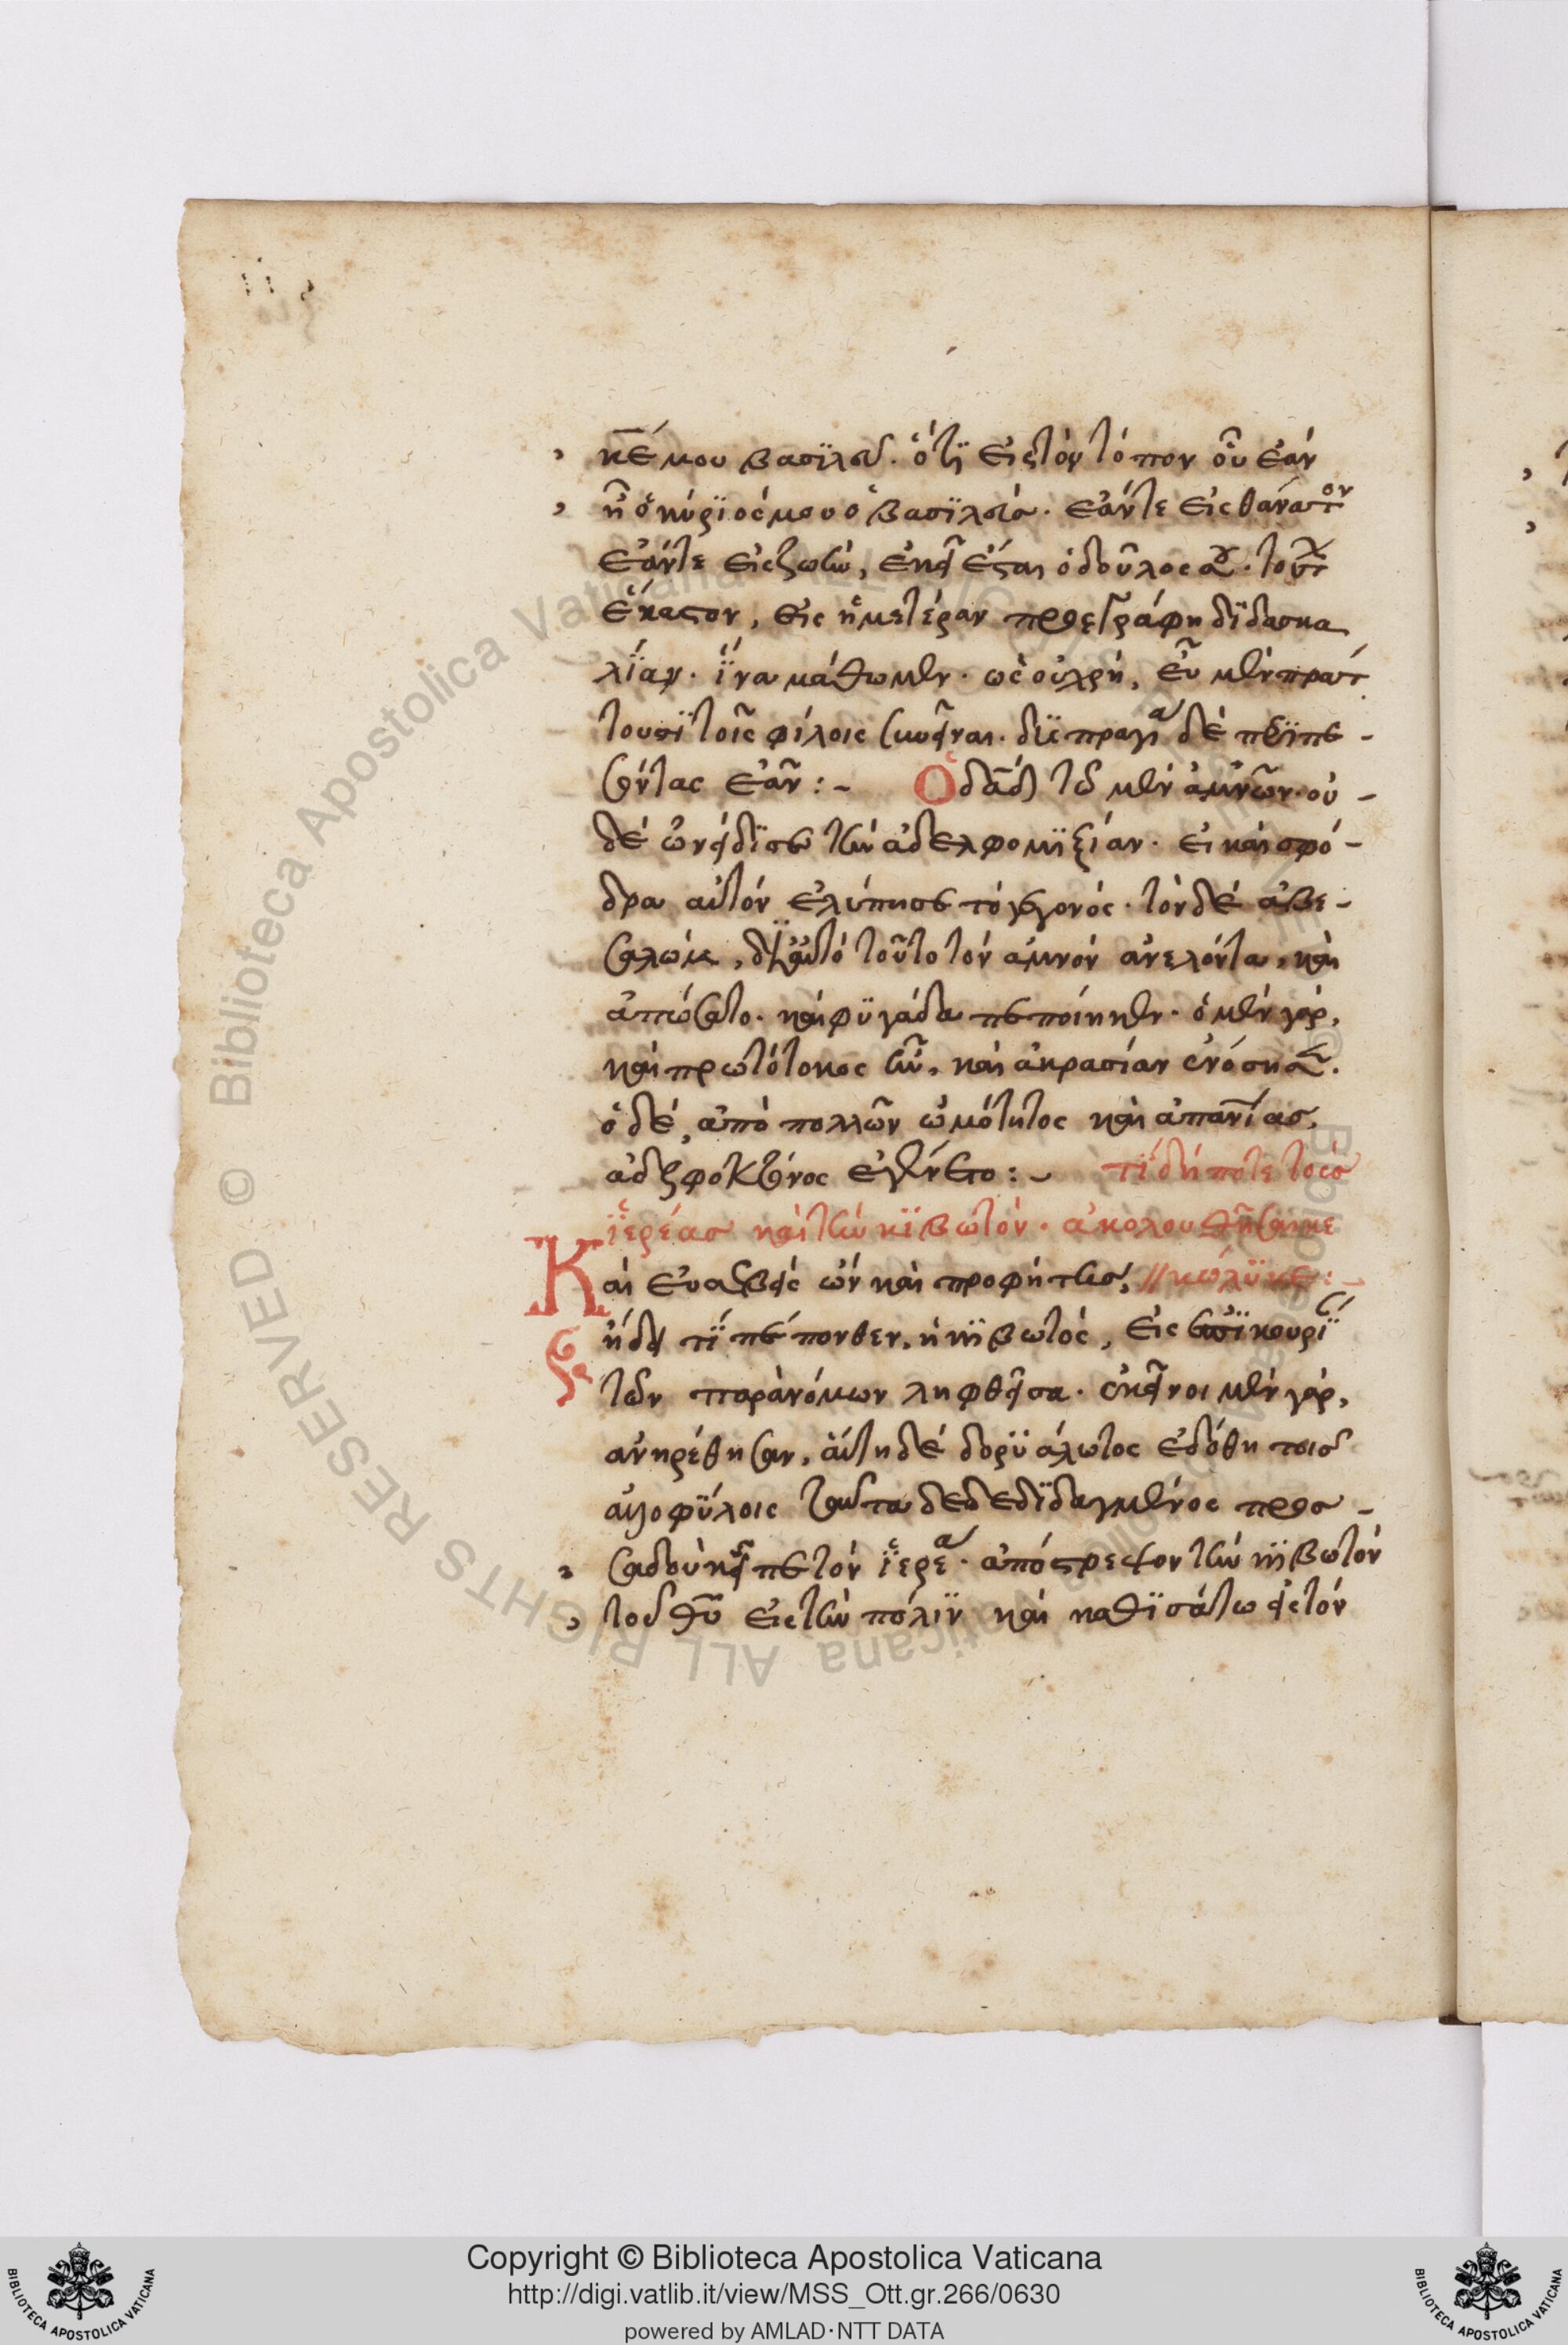 κε μου βασϊλεῦ. ὅτϊ εἰς τὸν τόπον οὗ ἐάν
ἦ ὁ κύρϊός μου ὁ βασϊλεύς. ἐάν τε εἰς θάνατον
ἐάν τε εἰς ζωὴν, ἐκεῖ ἔσται ὁ δοῦλος σου. τούτων
ἕκαστον, εἰς ἡμετέραν προεγράφη δϊδασκα
λίαν. ἵνα μάθωμεν. ὡς οὐ χρὴ, εὖ μὲν πράτ
τουσϊ τοῖς φίλοις συνεῖναι. δυσπραγία δὲ πε
σόντας ἐᾶν :- Ὁ δᾶδ τὸ μὲν ἀμνῶν. οὐ -
δὲ ὠνείδϊσε τὴν ἀδελφομιξίαν. εἰ καὶ σφό -
δρα αὐτὸν ἐλύπησε τὸ γεγονός. τὸν δὲ ἀβε -
σαλὼμ, δϊ αὐτὸ τοῦτο τὸν ἀμνὸν ἀνελόντα, καὶ
ἀπώσατο. καὶ φϋγάδα πεποίηκεν. ὁ μὲν γὰρ,
καὶ πρωτότοκος ὢν, καὶ ἀκρασίαν ἐνόσησε.
ὁ δὲ, ἀπὸ πολλῶν ὠμότητος καὶ ἀπανίας,
ἀδελφοκτόνος ἐγένετο :- Τί δήποτε τοὺς
ἱερέας καὶ τὴν κϊβωτόν. ἀκολουθῆσαι κε
Καὶ εὐσεβὴς ὢν καὶ προφήτης, // κώλϋκε :-
ᾔδει τϊ πέπονθεν, ἡ κϊβωτὸς, εἰς ἐπϊκουρϊ
τῶν παρανόμων ληφθεῖσα. ἐκεῖνοι μὲν γὰρ,
ἀνῃρέθησαν, αὕτη δὲ δορϋάλωτος ἐδόθη τοῖς
ἀλλοφύλοις ταῦτα δεδεδϊδαγμένος πρὸς -
σαδοὺκ εἶπε τὸν ἱερέα. ἀπόστρεψον τὴν κϊβωτὸν
τοῦ θυ εἰς τὴν πόλϊν καὶ καθϊσάτω εἰς τὸν
Biblioteca Apostolica Vaticana
ALL RIGHTS RESERVED ©
Copyright © Biblioteca Apostolica Vaticana
http://digi.vatlib.it/view/MSS_Ott.gr.266/0630
powered by AMLAD·NTT DATA
BIBLIOTECA APOSTOLICA VATICANA
BIBLIOTECA APOSTOLICA VATICANA